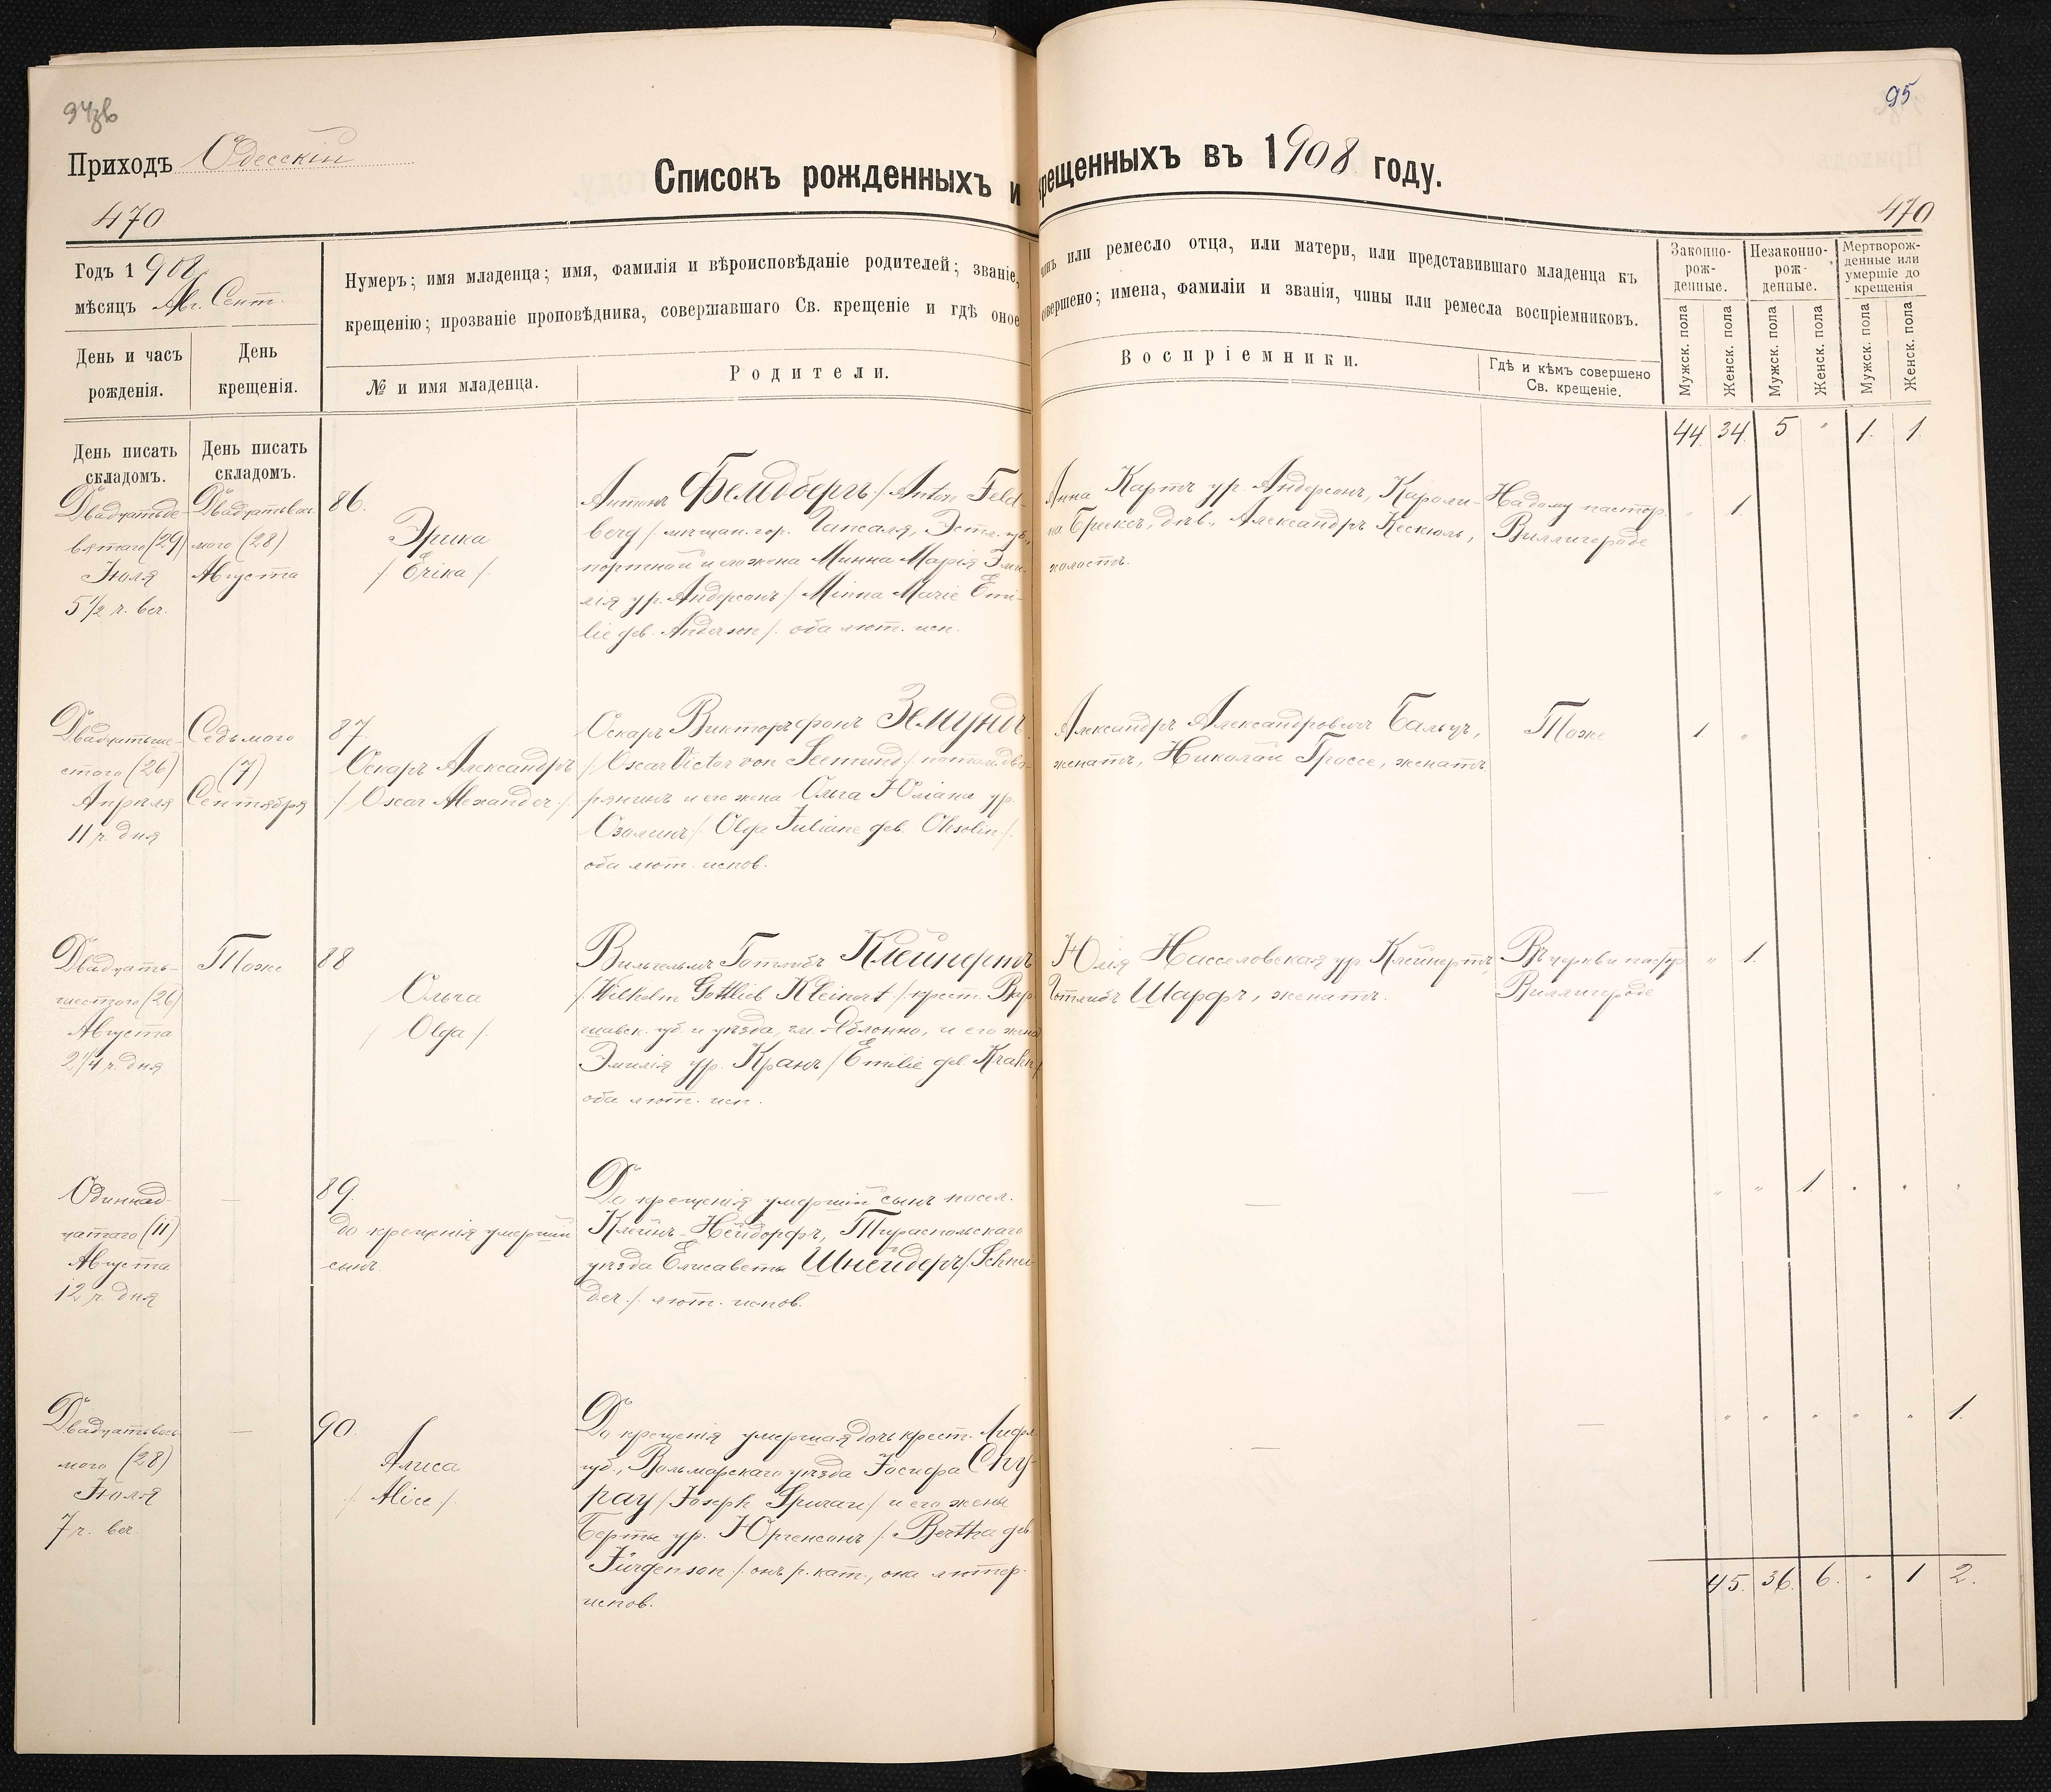 94зв
95
Приходъ Одесскій
Списокъ рожденныхъ и крещенныхъ въ 1908 году.
470
470
Годъ 1908
мѣсяцъ Авг. Сент.
Нумеръ; имя младенца; имя, фамилія и вѣроисповѣданіе родителей; званіе, чинъ или ремесло отца, или матери, или представившаго младенца къ
крещенію; прозваніе проповѣдника, совершавшаго Св. крещеніе и гдѣ оное совершено; имена, фамиліи и званія, чины или ремесла воспріемниковъ.
Законно-
рож-
денные.
Незаконно-
рож-
денные.
Мертворож-
денные или
умершіе до
крещенія
День и часъ
рожденія.
День
крещенія.
№ и имя младенца.
Родители.
Воспріемники.
Гдѣ и кѣмъ совершено
Св. крещеніе.
Мужск. пола
Женск. пола
Мужск. пола
Женск. пола
Мужск. пола
Женск. пола
День писать
складомъ.
День писать
складомъ.
44. 34. 5 " 1. 1.
Двадцатьде-
вятаго (29)
Іюля
5 1/2 ч. веч.
Двадцатьвось-
мого (28)
Августа
86.
Эрика
/ Erika /.
Антонъ Фельдбергъ /. Anton Feld-
berg /. мѣщан. гор. Гапсаля, Эстл. губ.,
портной и его жена Минна Марія Эми-
лія ур. Андерсонъ /. Minna Marie Emi-
lie geb. Anderson /. оба лют. исп.
Анна Картъ ур. Андерсонъ, Кароли-
на Брексъ, дѣв., Александръ Кескюль,
холостъ.
На дому пастор.
Виллигероде
" 1.
Двадцатьше-
стого (26)
Апрѣля
11 ч. дня
Седьмого
(7)
Сентября
87.
Оскаръ Александръ
/. Oscar Alexander /.
Оскаръ Викторъ фонъ Земундъ
/. Oscar Victor von Seemund /. потом. дво-
рянинъ и его жена Ольга Юліана ур.
Озолинъ /. Olga Juliane geb. Ohsolin /.
оба лют. испов.
Александръ Александровичъ Бальцъ,
женатъ, Николай Гроссе, женатъ.
Тоже
1. "
Двадцать-
шестого (26)
Августа
2 1/4 ч. дня
Тоже
88
Ольга
/ Olga /.
Вильгельмъ Готлибъ Клейнертъ
/. Wilhelm Gottlieb Kleinert /. крест. Вар-
шавск. губ. и уѣзда, гм. Яблонно, и его жена
Эмилія ур. Кранъ /. Emilie geb. Krahn /.
оба лют. исп.
Юлія Насселовская ур. Клейнертъ,
Готлибъ Шарфъ, женатъ.
Въ церкви пастор.
Виллигероде
" 1.
Одиннад-
цатаго (11)
Августа
12 ч. дня
—
89.
до крещенія умершій
сынъ.
До крещенія умершій сынъ посел.
Клейнъ-Нейдорфъ, Тираспольскаго
уѣзда Елисаветы Шнейдеръ /. Schnei-
der /. лют. испов.
—
—
" " 1. " " "
Двадцатьвось-
мого (28)
Іюля
7 ч. веч.
—
90.
Алиса
/. Alice /.
До крещенія умершая дочь крест. Лифл.
губ., Вольмарскаго уѣзда Іосифа Спу-
рау /. Joseph Spurau /. и его жены
Берты ур. Юргенсонъ /. Bertha geb.
Jürgenson /. онъ р. кат., она лютер.
испов.
—
—
" " " " " 1.
45. 36. 6. " 1 2.